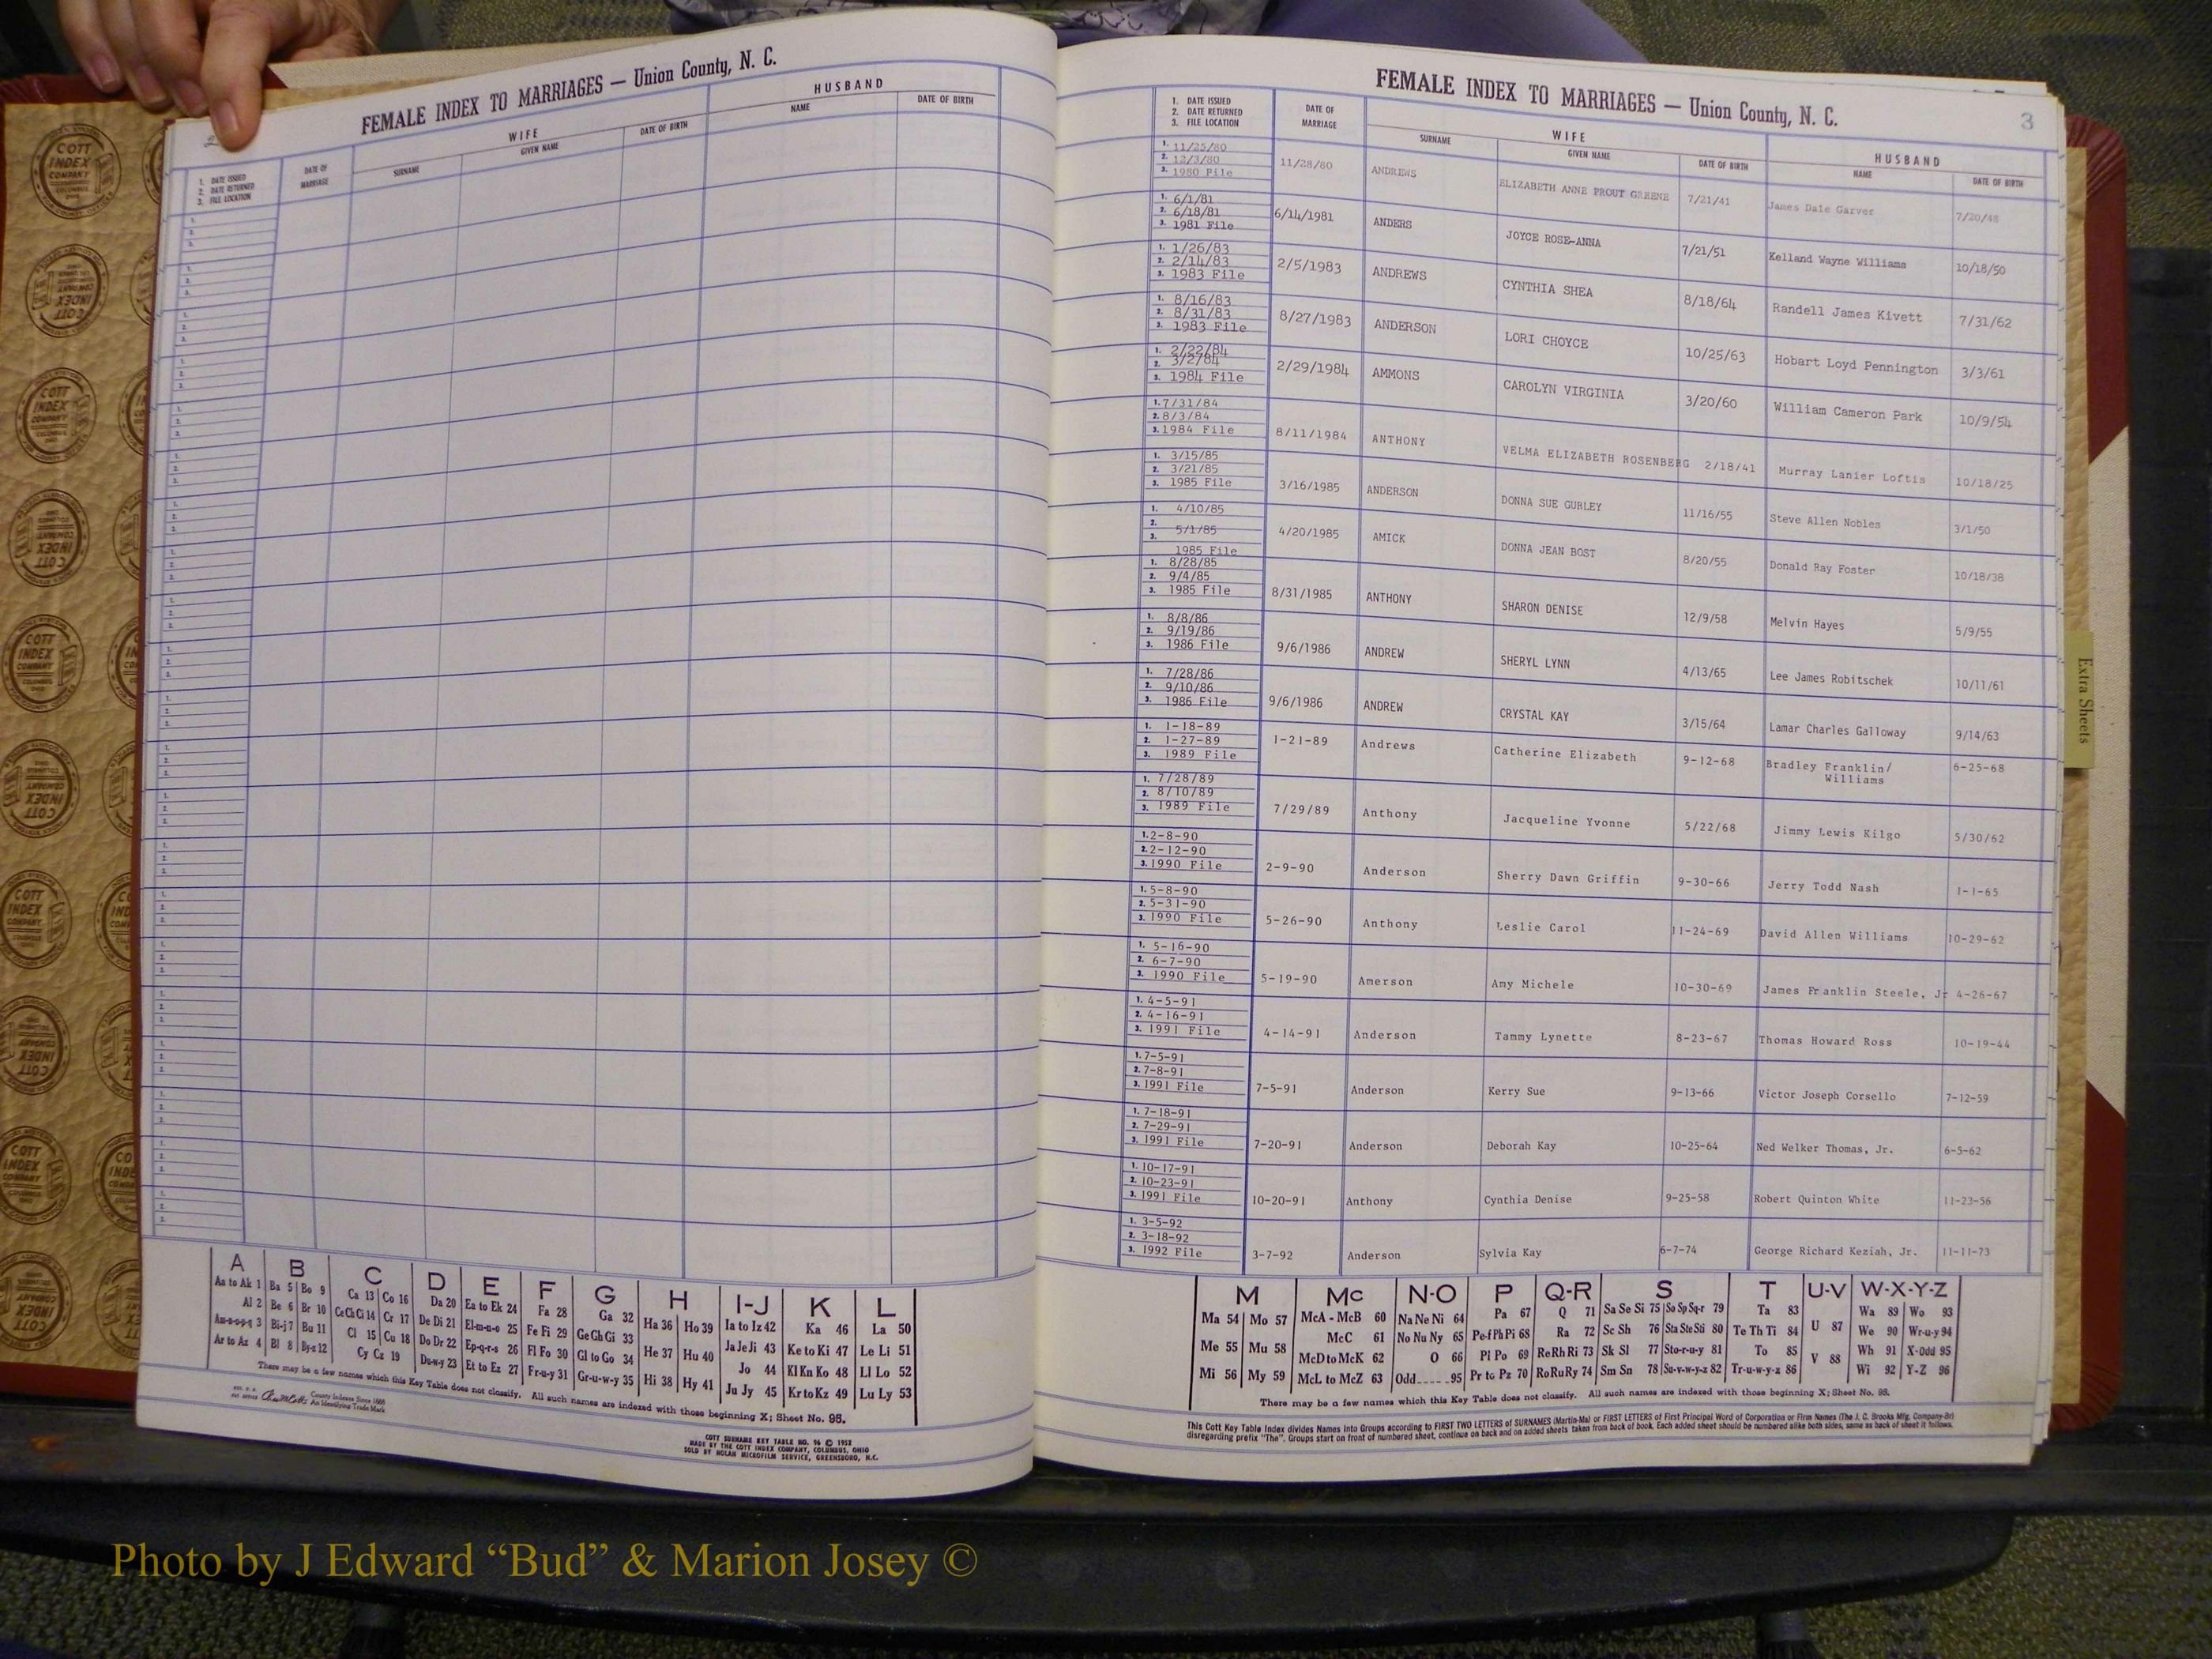 FEMALE INDEX TO MARRIAGES — Union County, N. C.
WIFE HUSBAND
1. DATE ISSUED
2. DATE RETURNED
3. FILE LOCATION
DATE OF MARRIAGE SURNAME GIVEN NAME DATE OF BIRTH NAME DATE OF BIRTH
A B C D E F G H I-J K L
Aa to Ak 1 Ba 5 Bo 9 Ca 13 Co 16 Da 20 Ea to Ek 24 Fa 28 Ga 32 Ha 36 Ho 39 Ia to Iz 42 Ka 46 La 50
Al 2 Be 6 Br 10 Ce Ch Ci 14 Cr 17 De Di 21 El-m-n-o 25 Fe Fi 29 Ge Gh Gi 33 He 37 Hu 40 Ja Je Ji 43 Ke to Ki 47 Le Li 51
Am-n-o-p-q 3 Bi-j 7 Bu 11 Cl 15 Cu 18 Do Dr 22 Ep-q-r-s 26 Fl Fo 30 Gl to Go 34 Hi 38 Hy 41 Jo 44 Kl Kn Ko 48 Ll Lo 52
Ar to Az 4 Bl 8 By-z 12 Cy Cz 19 Du-w-y 23 Et to Ez 27 Fr-u-y 31 Gr-u-w-y 35 Ju Jy 45 Kr to Kz 49 Lu Ly 53
There may be a few names which this Key Table does not classify. All such names are indexed with those beginning X; Sheet No. 95.
County Indexes Since 1888
An Identifying Trade Mark
COTT SURNAME KEY TABLE NO. 96 © 1952
MADE BY THE COTT INDEX COMPANY, COLUMBUS, OHIO
SOLD BY NOLAN MICROFILM SERVICE, GREENSBORO, N.C.
FEMALE INDEX TO MARRIAGES — Union County, N. C.
3
1. DATE ISSUED
2. DATE RETURNED
3. FILE LOCATION
DATE OF MARRIAGE WIFE HUSBAND
SURNAME GIVEN NAME DATE OF BIRTH NAME DATE OF BIRTH
1. 11/25/80
2. 12/3/80
3. 1980 File
11/28/80 ANDREWS ELIZABETH ANNE PROUT GREENE 7/21/41 James Dale Garver 7/20/48
1. 6/1/81
2. 6/18/81
3. 1981 File
6/14/1981 ANDERS JOYCE ROSE-ANNA 7/21/51 Kelland Wayne Williams 10/18/50
1. 1/26/83
2. 2/14/83
3. 1983 File
2/5/1983 ANDREWS CYNTHIA SHEA 8/18/64 Randell James Kivett 7/31/62
1. 8/16/83
2. 8/31/83
3. 1983 File
8/27/1983 ANDERSON LORI CHOYCE 10/25/63 Hobart Loyd Pennington 3/3/61
1. 2/22/84
2. 3/2/84
3. 1984 File
2/29/1984 AMMONS CAROLYN VIRGINIA 3/20/60 William Cameron Park 10/9/54
1. 7/31/84
2. 8/3/84
3. 1984 File
8/11/1984 ANTHONY VELMA ELIZABETH ROSENBERG 2/18/41 Murray Lanier Loftis 10/18/25
1. 3/15/85
2. 3/21/85
3. 1985 File
3/16/1985 ANDERSON DONNA SUE GURLEY 11/16/55 Steve Allen Nobles 3/1/50
1. 4/10/85
2.
3. 5/1/85
1985 File
4/20/1985 AMICK DONNA JEAN BOST 8/20/55 Donald Ray Foster 10/18/38
1. 8/28/85
2. 9/4/85
3. 1985 File
8/31/1985 ANTHONY SHARON DENISE 12/9/58 Melvin Hayes 5/9/55
1. 8/8/86
2. 9/19/86
3. 1986 File
9/6/1986 ANDREW SHERYL LYNN 4/13/65 Lee James Robitschek 10/11/61
1. 7/28/86
2. 9/10/86
3. 1986 File
9/6/1986 ANDREW CRYSTAL KAY 3/15/64 Lamar Charles Galloway 9/14/63
1. 1-18-89
2. 1-27-89
3. 1989 File
1-21-89 Andrews Catherine Elizabeth 9-12-68 Bradley Franklin/ 6-25-68
Williams
1. 7/28/89
2. 8/10/89
3. 1989 File
7/29/89 Anthony Jacqueline Yvonne 5/22/68 Jimmy Lewis Kilgo 5/30/62
1. 2-8-90
2. 2-12-90
3. 1990 File
2-9-90 Anderson Sherry Dawn Griffin 9-30-66 Jerry Todd Nash 1-1-65
1. 5-8-90
2. 5-31-90
3. 1990 File
5-26-90 Anthony Leslie Carol 11-24-69 David Allen Williams 10-29-62
1. 5-16-90
2. 6-7-90
3. 1990 File
5-19-90 Amerson Amy Michele 10-30-69 James Franklin Steele, Jr 4-26-67
1. 4-5-91
2. 4-16-91
3. 1991 File
4-14-91 Anderson Tammy Lynette 8-23-67 Thomas Howard Ross 10-19-44
1. 7-5-91
2. 7-8-91
3. 1991 File
7-5-91 Anderson Kerry Sue 9-13-66 Victor Joseph Corsello 7-12-59
1. 7-18-91
2. 7-29-91
3. 1991 File
7-20-91 Anderson Deborah Kay 10-25-64 Ned Welker Thomas, Jr. 6-5-62
1. 10-17-91
2. 10-23-91
3. 1991 File
10-20-91 Anthony Cynthia Denise 9-25-58 Robert Quinton White 11-23-56
1. 3-5-92
2. 3-18-92
3. 1992 File
3-7-92 Anderson Sylvia Kay 6-7-74 George Richard Keziah, Jr. 11-11-73
M Mc N-O P Q-R S T U-V W-X-Y-Z
Ma 54 Mo 57 McA - McB 60 Na Ne Ni 64 Pa 67 Q 71 Sa Se Si 75 So Sp Sq-r 79 Ta 83 U 87 Wa 89 Wo 93
Me 55 Mu 58 McC 61 No Nu Ny 65 Pe-f Ph Pi 68 Ra 72 Sc Sh 76 Sta Ste Sti 80 Te Th Ti 84 V 88 We 90 Wr-u-y 94
Mi 56 My 59 McD to McK 62 O 66 Pl Po 69 Re Rh Ri 73 Sk Sl 77 Sto-r-u-y 81 To 85 Wh 91 X-Odd 95
McL to McZ 63 Odd.....95 Pr to Pz 70 Ro Ru Ry 74 Sm Sn 78 Su-v-w-y-z 82 Tr-u-w-y-z 86 Wi 92 Y-Z 96
There may be a few names which this Key Table does not classify. All such names are indexed with those beginning X; Sheet No. 95.
This Cott Key Table Index divides Names into Groups according to FIRST TWO LETTERS of SURNAMES (Martin-Ma) or FIRST LETTERS of First Principal Word of Corporation or Firm Names (The J. C. Brooks Mfg. Company-Br)
disregarding prefix "The". Groups start on front of numbered sheet, continue on back and on added sheets taken from back of book. Each added sheet should be numbered alike both sides, same as back of sheet it follows.
Extra Sheets
COTT INDEX COMPANY
Photo by J Edward “Bud” & Marion Josey ©